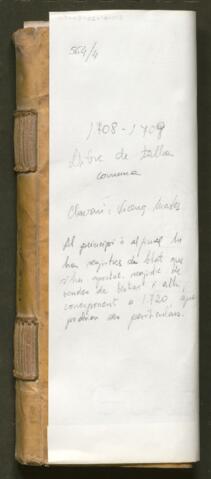 564/4
1708-1709
Llibre de tallla
comuna
Clavari: Vicenç
Al principi i al final hi
ha registres de blat que
s'ha aportat, registre de
vendes de blat i alls,
corresponent a 1720, que
podrien ser particulars.